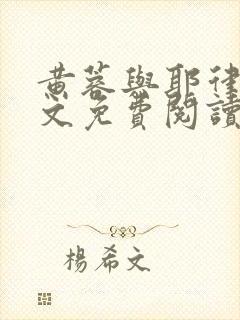 黄蓉與耶律
文免費閱讀
楊希文